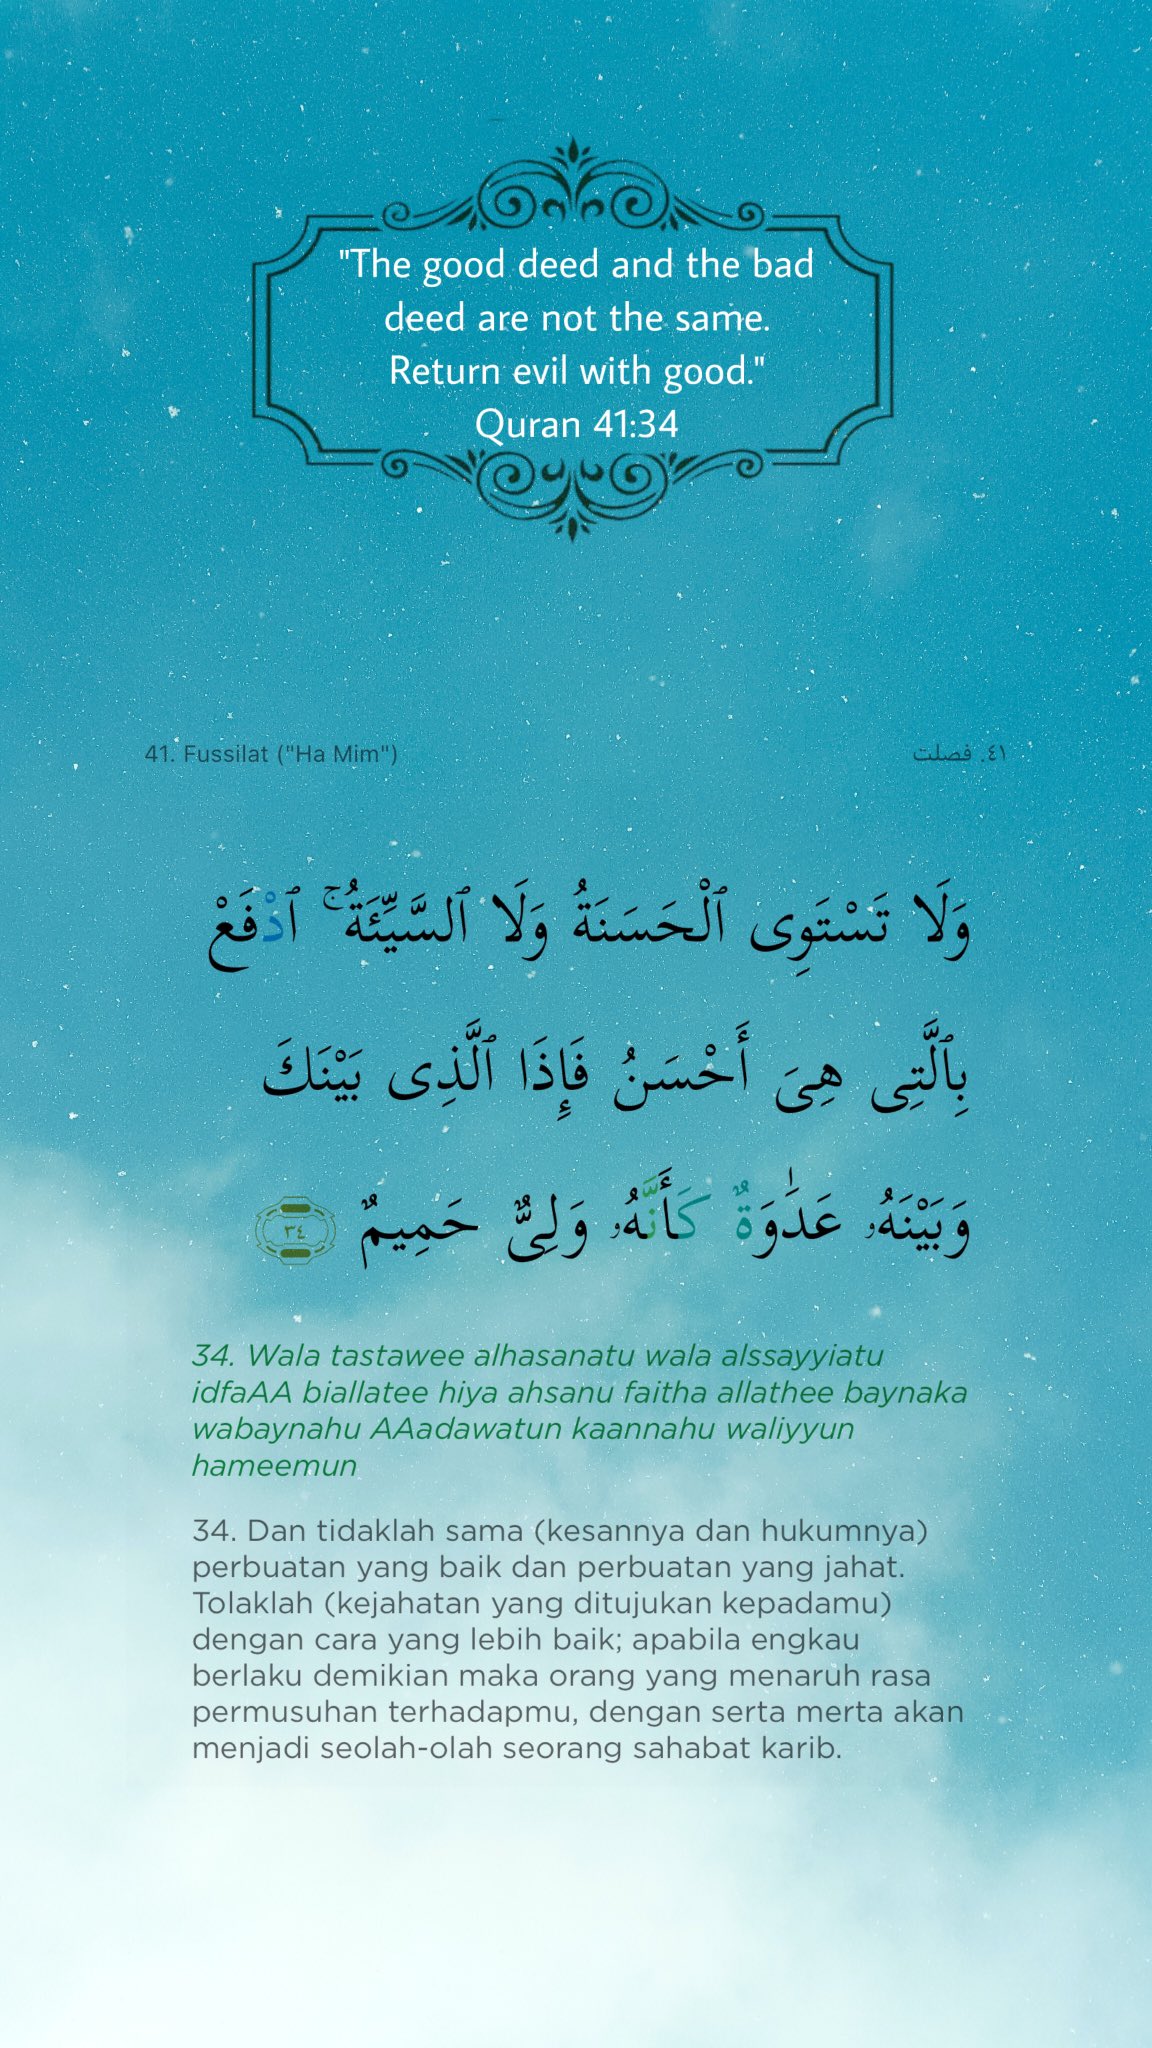 "The good deed and the bad
deed are not the same.
Return evil with good."
Quran 41:34
41. Fussilat ("Ha Mim")
٤١. فصلت
وَلَا تَسْتَوِى ٱلْحَسَنَةُ وَلَا ٱلسَّيِّئَةُ ۚ ٱدْفَعْ
بِٱلَّتِى هِىَ أَحْسَنُ فَإِذَا ٱلَّذِى بَيْنَكَ
وَبَيْنَهُۥ عَدَٰوَةٌ كَأَنَّهُۥ وَلِىٌّ حَمِيمٌ ٣٤
34. Wala tastawee alhasanatu wala alssayyiatu
idfaAA biallatee hiya ahsanu faitha allathee baynaka
wabaynahu AAadawatun kaannahu waliyyun
hameemun
34. Dan tidaklah sama (kesannya dan hukumnya)
perbuatan yang baik dan perbuatan yang jahat.
Tolaklah (kejahatan yang ditujukan kepadamu)
dengan cara yang lebih baik; apabila engkau
berlaku demikian maka orang yang menaruh rasa
permusuhan terhadapmu, dengan serta merta akan
menjadi seolah-olah seorang sahabat karib.